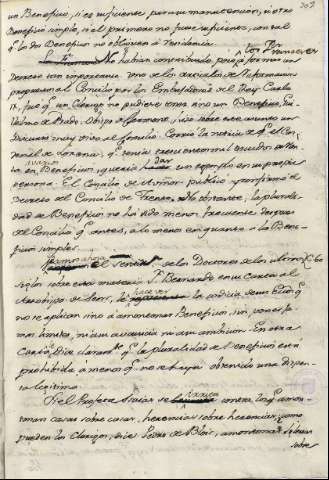 307
un Beneficio, si es suficiente para su manutencion, u otro
Beneficio simple, si el primero no fuese suficiente, con tal
q.e los dos Beneficios no obliguen a residencia.
No habian contribuido poco a formar un los Franceses
Decreto tan importante. Uno de los articulos de Reformacion
propuestos al Concilio por los Embaxadores del Rey Carlos
IX, fue q.e un Clerigo no pudiese tener sino un Beneficio. Gui-
llelmo de Prado, Obispo de Clermont, hizo sobre este asunto un
discurso muy vivo al Concilio. Corrió la noticia de q.e el Car-
denal de Lorena, q.e tenia trescientos mil escudos de Ren-
ta en Beneficios, queria dar un exemplo en su propia
persona. El Concilio de publicó y confirmó el
Decreto del Concilio de Trento. No obstante, la plurali-
dad de Beneficios no ha sido menos frecuente despues
del Concilio q.e antes, a lo menos en quanto a los Bene-
ficios simples.
el sentir de los Doctores de los ultimos
siglos sobre esta materia. S. Bernardo en su Carta al
Arzobispo de Sens, la codicia de un Clerigo q.e
no se aplica sino a amontonar Beneficios, sin poner le-
mas limites, ni a su avaricia ni a su ambicion. En otra
Carta dice claram.te q.e la pluralidad de Beneficios está
prohibida a menos q.e no se haya obtenido una dispen-
sa legitima.
Si el Profeta Isaias se contra los q.e amon-
tonan casas sobre casas, herencias sobre herencias, ¿como
pueden los Clerigos, dice Pedro de Blois, amontonar Iglesias
sobre